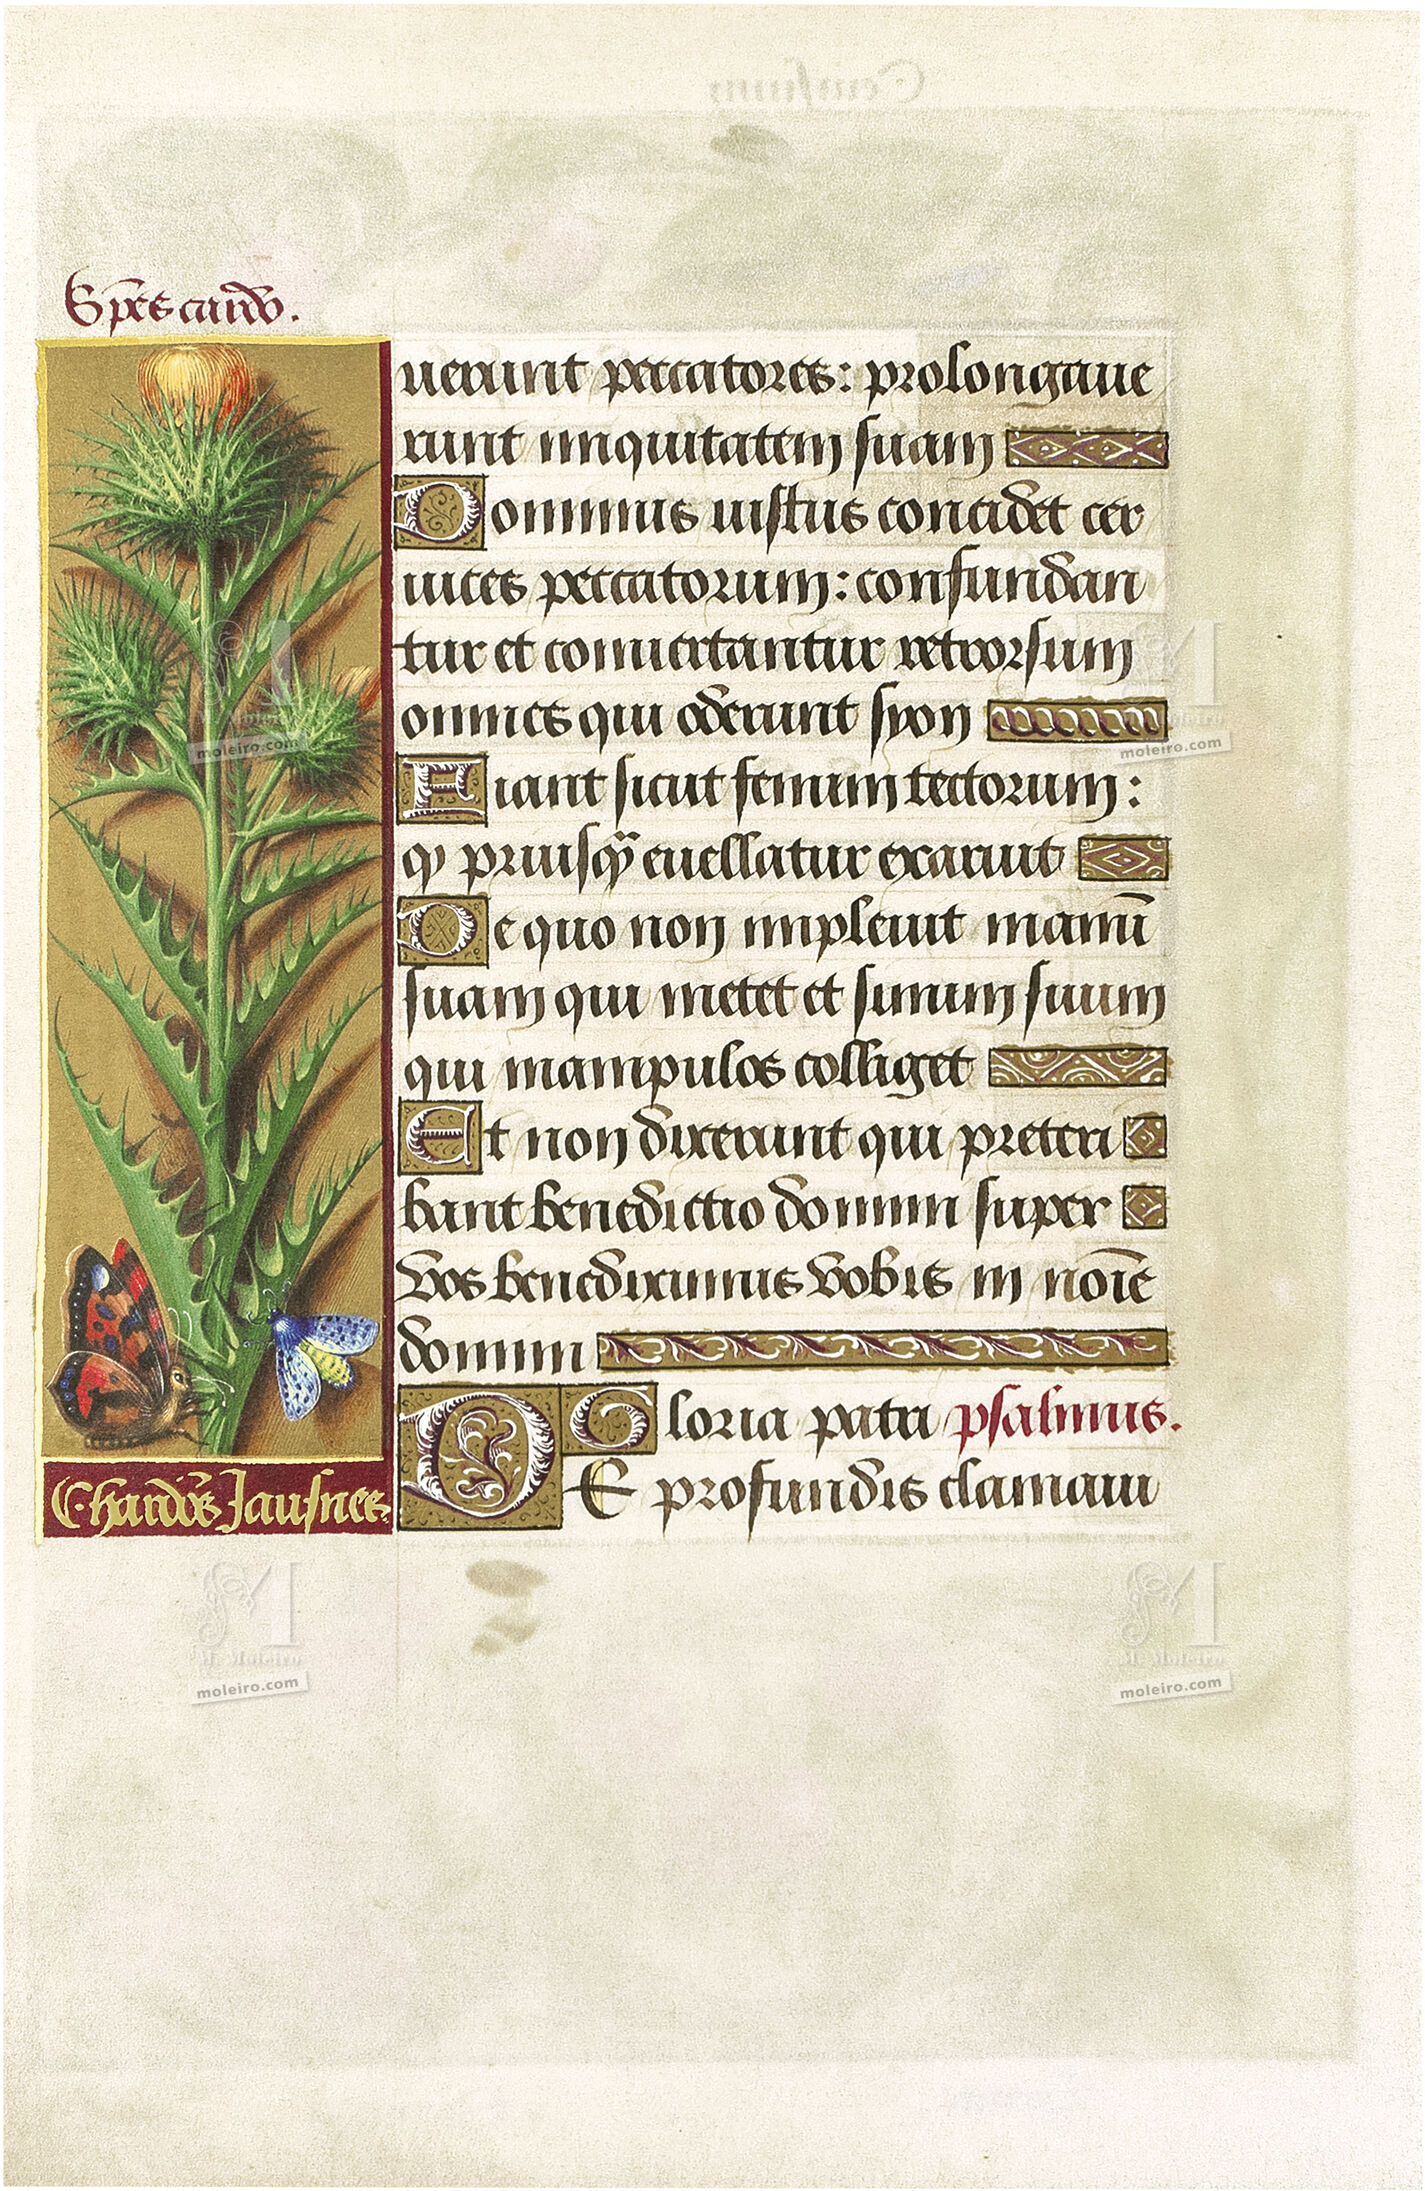 Spēs cardo.
uerunt peccatores: prolongaue
runt iniquitatem suam
Dominus iustus concidet cer
uices peccatorum: confundan
tur et conuertantur retrorsum
omnes qui oderunt syon
Fiant sicut fenum tectorum:
qͥ priusqͣ euellatur exaruit
De quo non impleuit manū
suam qui metet et sinum suum
qui manipulos colliget
Et non dixerunt qui preteri
bant benedictio domini super
vos benediximus vobis in noīe
domini
Gloria patri psalmus.
DE profundis clamaui
Chardōs Jausnes.
moleiro.com
moleiro.com
M. Moleiro
moleiro.com
M. Moleiro
moleiro.com